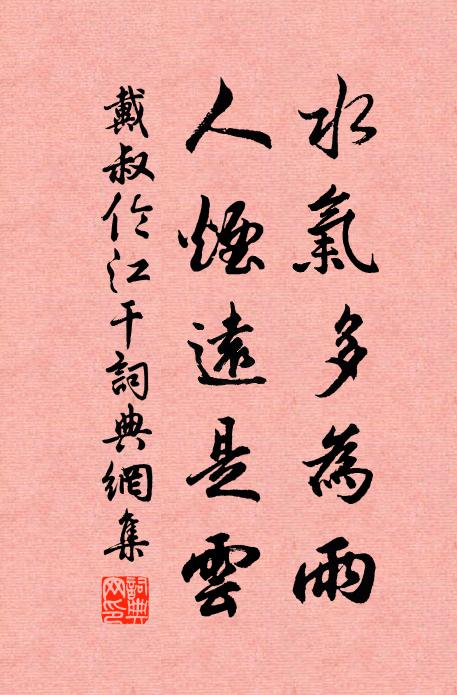 水氣多為雨
人煙遠是雲
戴叔伦江干詞典網集
詞典網印